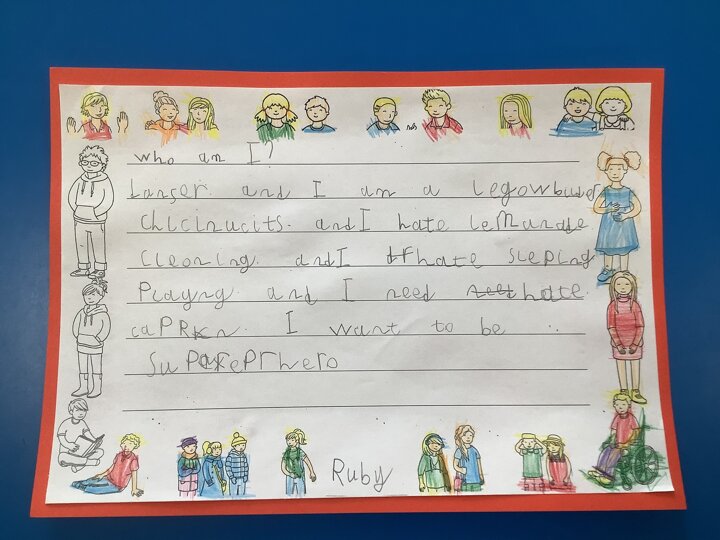 who am I?
Danser. and I am a legowbulder
Chicinucits. and I hate lemunade
cleoning. and I hate sleping
Playng and I need hate
caPRKn. I want to be
SuPareprhero
Ruby